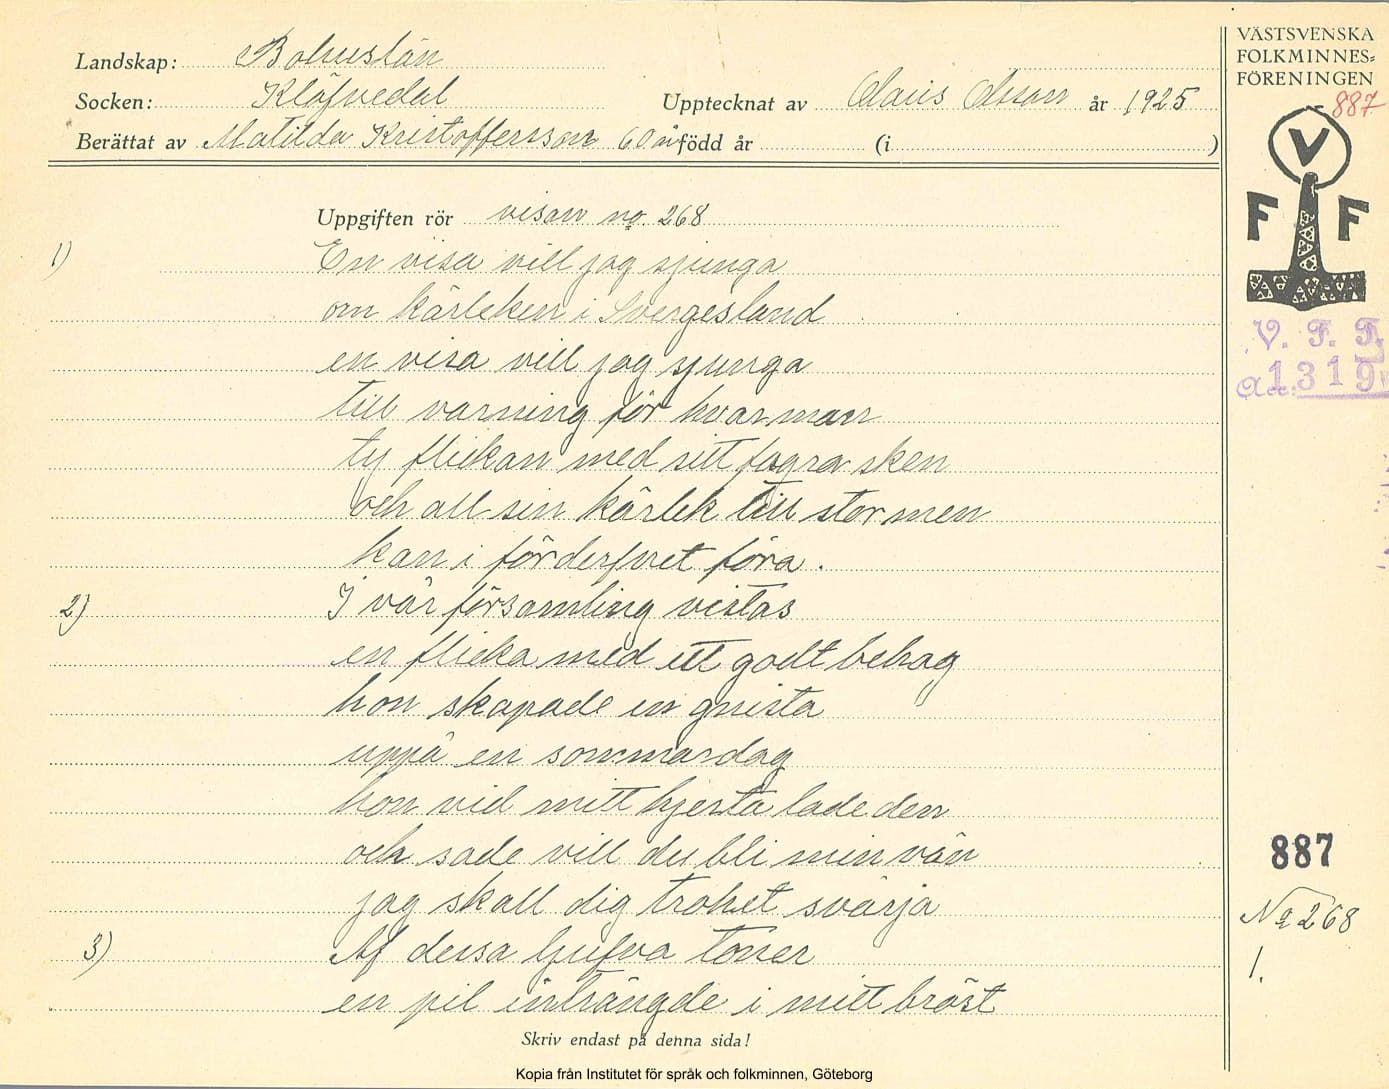 Landskap: Bohuslän
Socken: Klöfvedal
Upptecknat av Olaus Olsson år 1925
Berättat av Matilda Kristoffersson 60 år född år (i )
VÄSTSVENSKA
FOLKMINNES-
FÖRENINGEN
887
V
F F
V. F. F.
Acc. 1319
Uppgiften rör visan no 268
1) En visa vill jag sjunga
om kärleken i Sverges land
en visa vill jag sjunga
till varning för hvar man
ty flickan med sitt fagra sken
och all sin kärlek till stor men
kan i förderfvet föra.
2) I vår församling vistas
en flicka med ett godt behag
hon skapade en gnista
uppå en sommardag
hon vid mitt hjerta lade den
och sade vill du bli min vän
jag skall dig trohet svärja
3) Af dessa ljufva toner
en pil inträngde i mitt bröst
887
No 268
1.
Skriv endast på denna sida!
Kopia från Institutet för språk och folkminnen, Göteborg